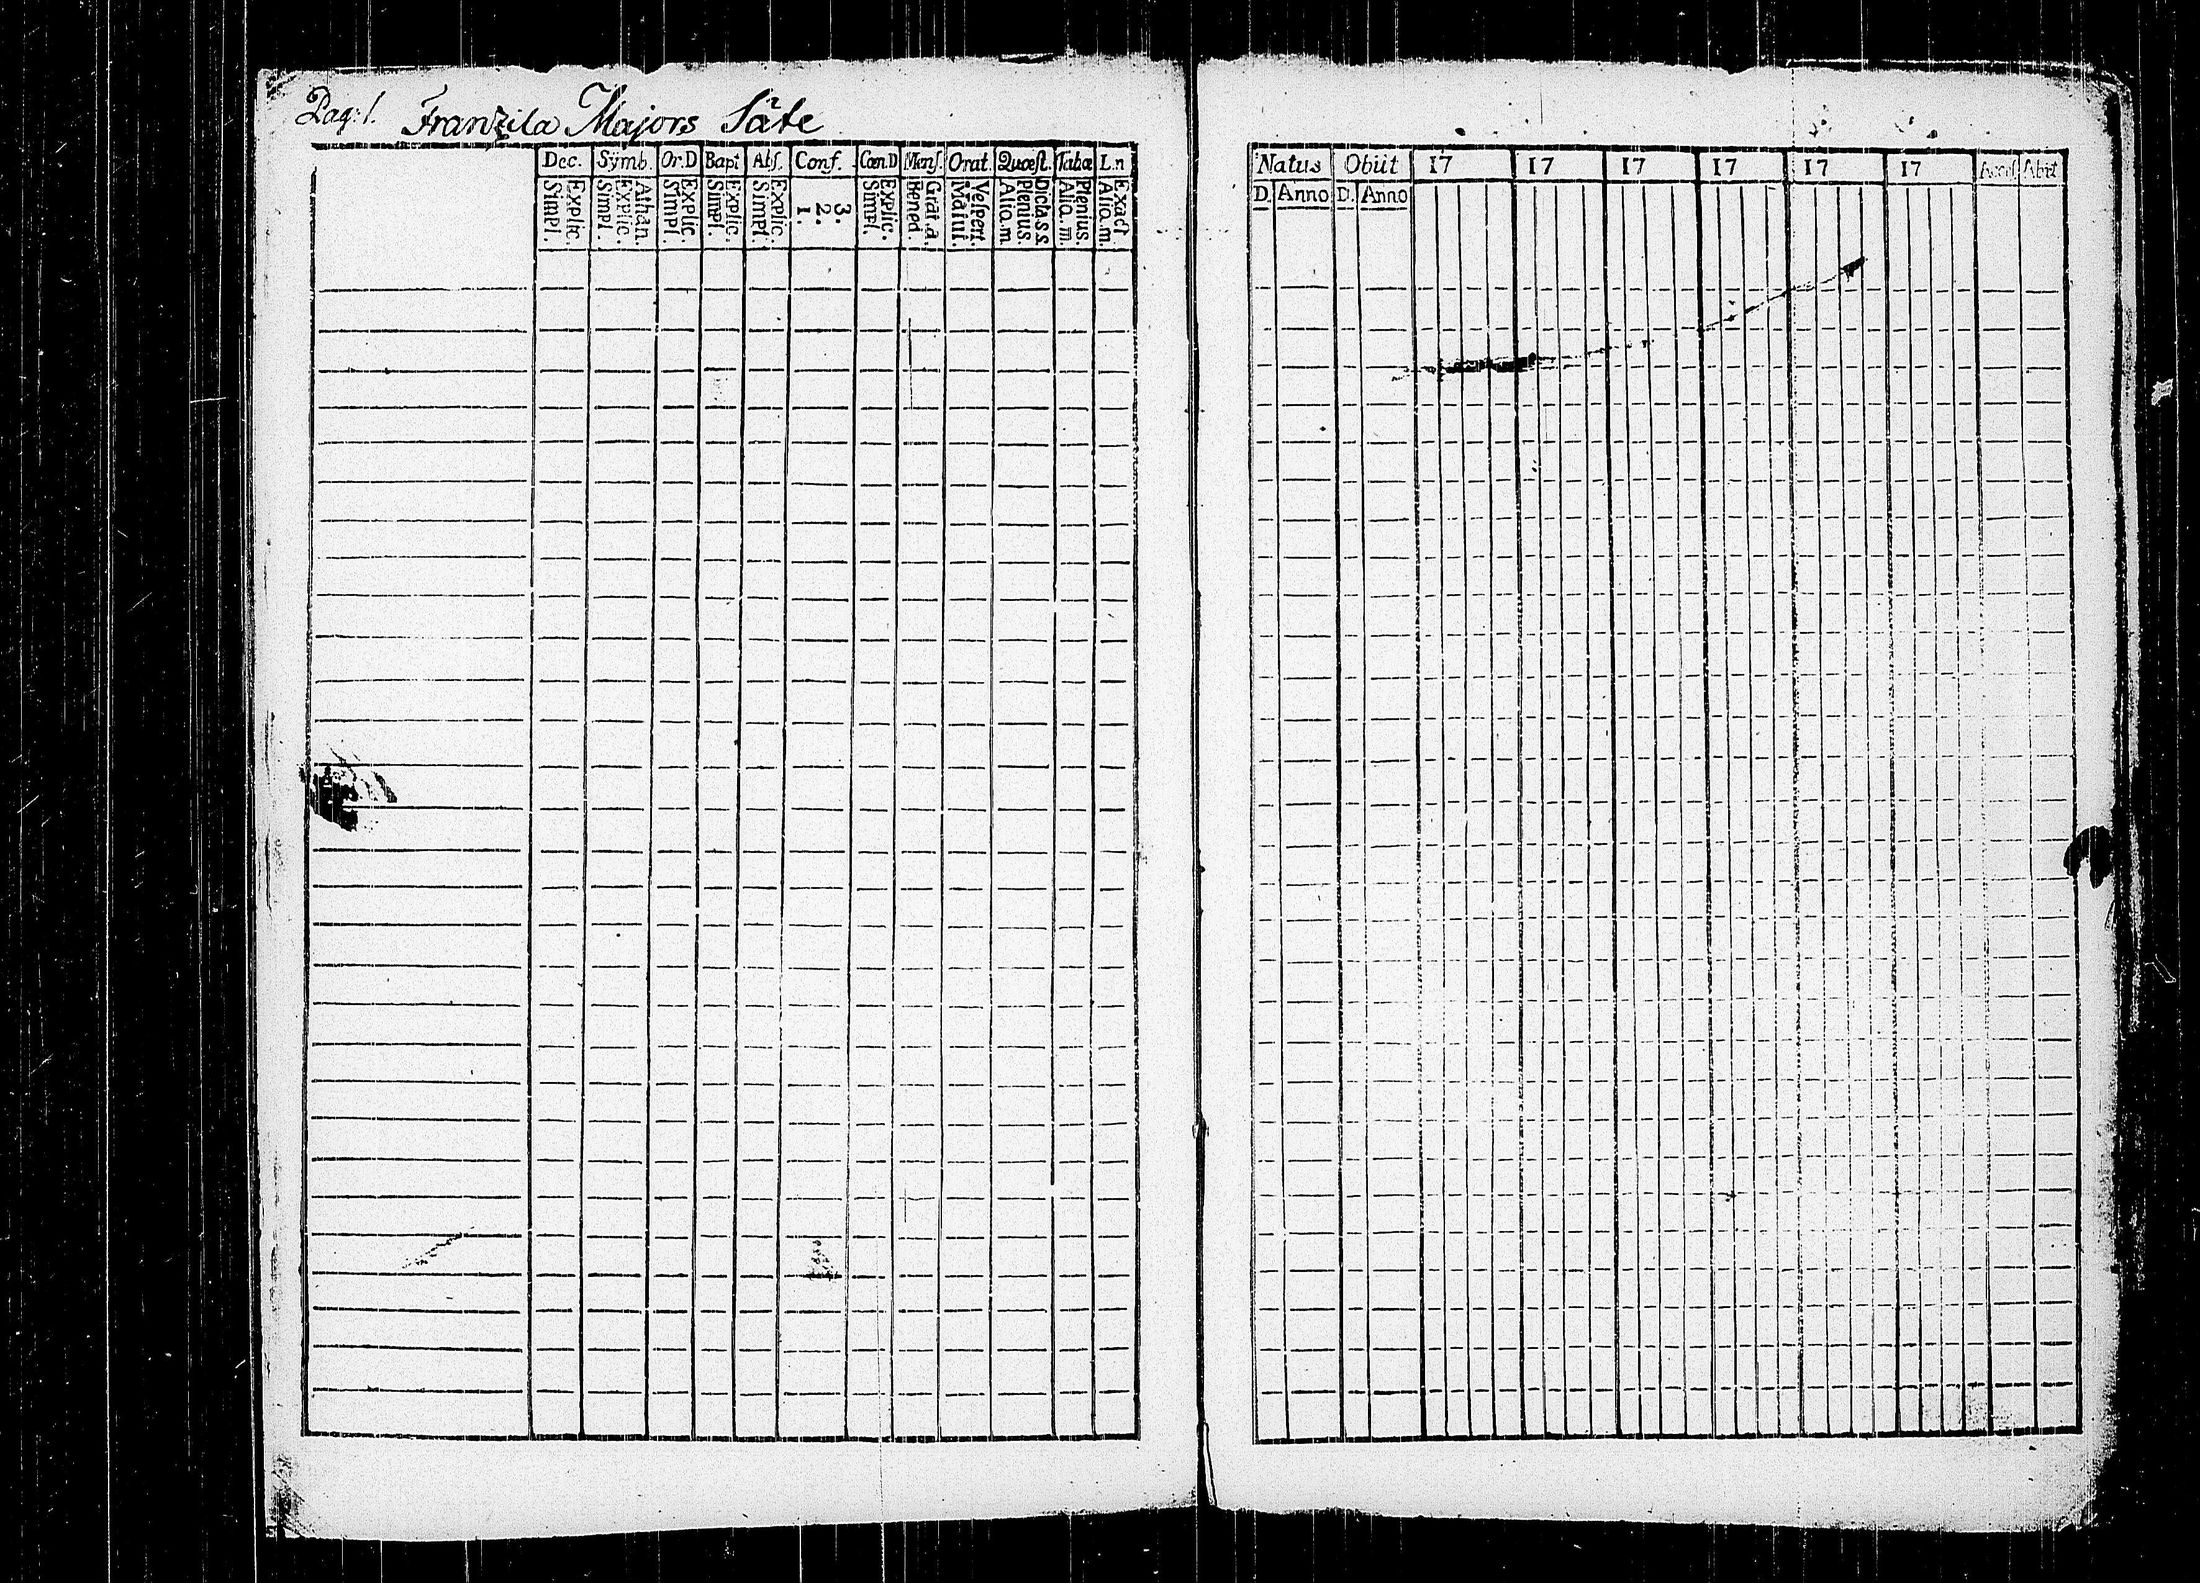 Pag: 1. Franzila Majors Säte
Dec. Symb. Or.D Bapt Abs. Conf. Cœn.D Mens. Orat. Quæst. Tabæ L.n
Explic. Simpl. Athan. Explic. Simpl. Explic. Simpl. Explic. Simpl. Explic. Simpl. 3. 2. 1. Explic. Simpl. Grat.a. Bened. Vespert. Matuti. Dicta.s.s. Plenius. Aliq.m. Plenius. Aliq.m Exact. Aliq.m.
Natus Obiit 17 17 17 17 17 17 Access Abiit
D. Anno D. Anno